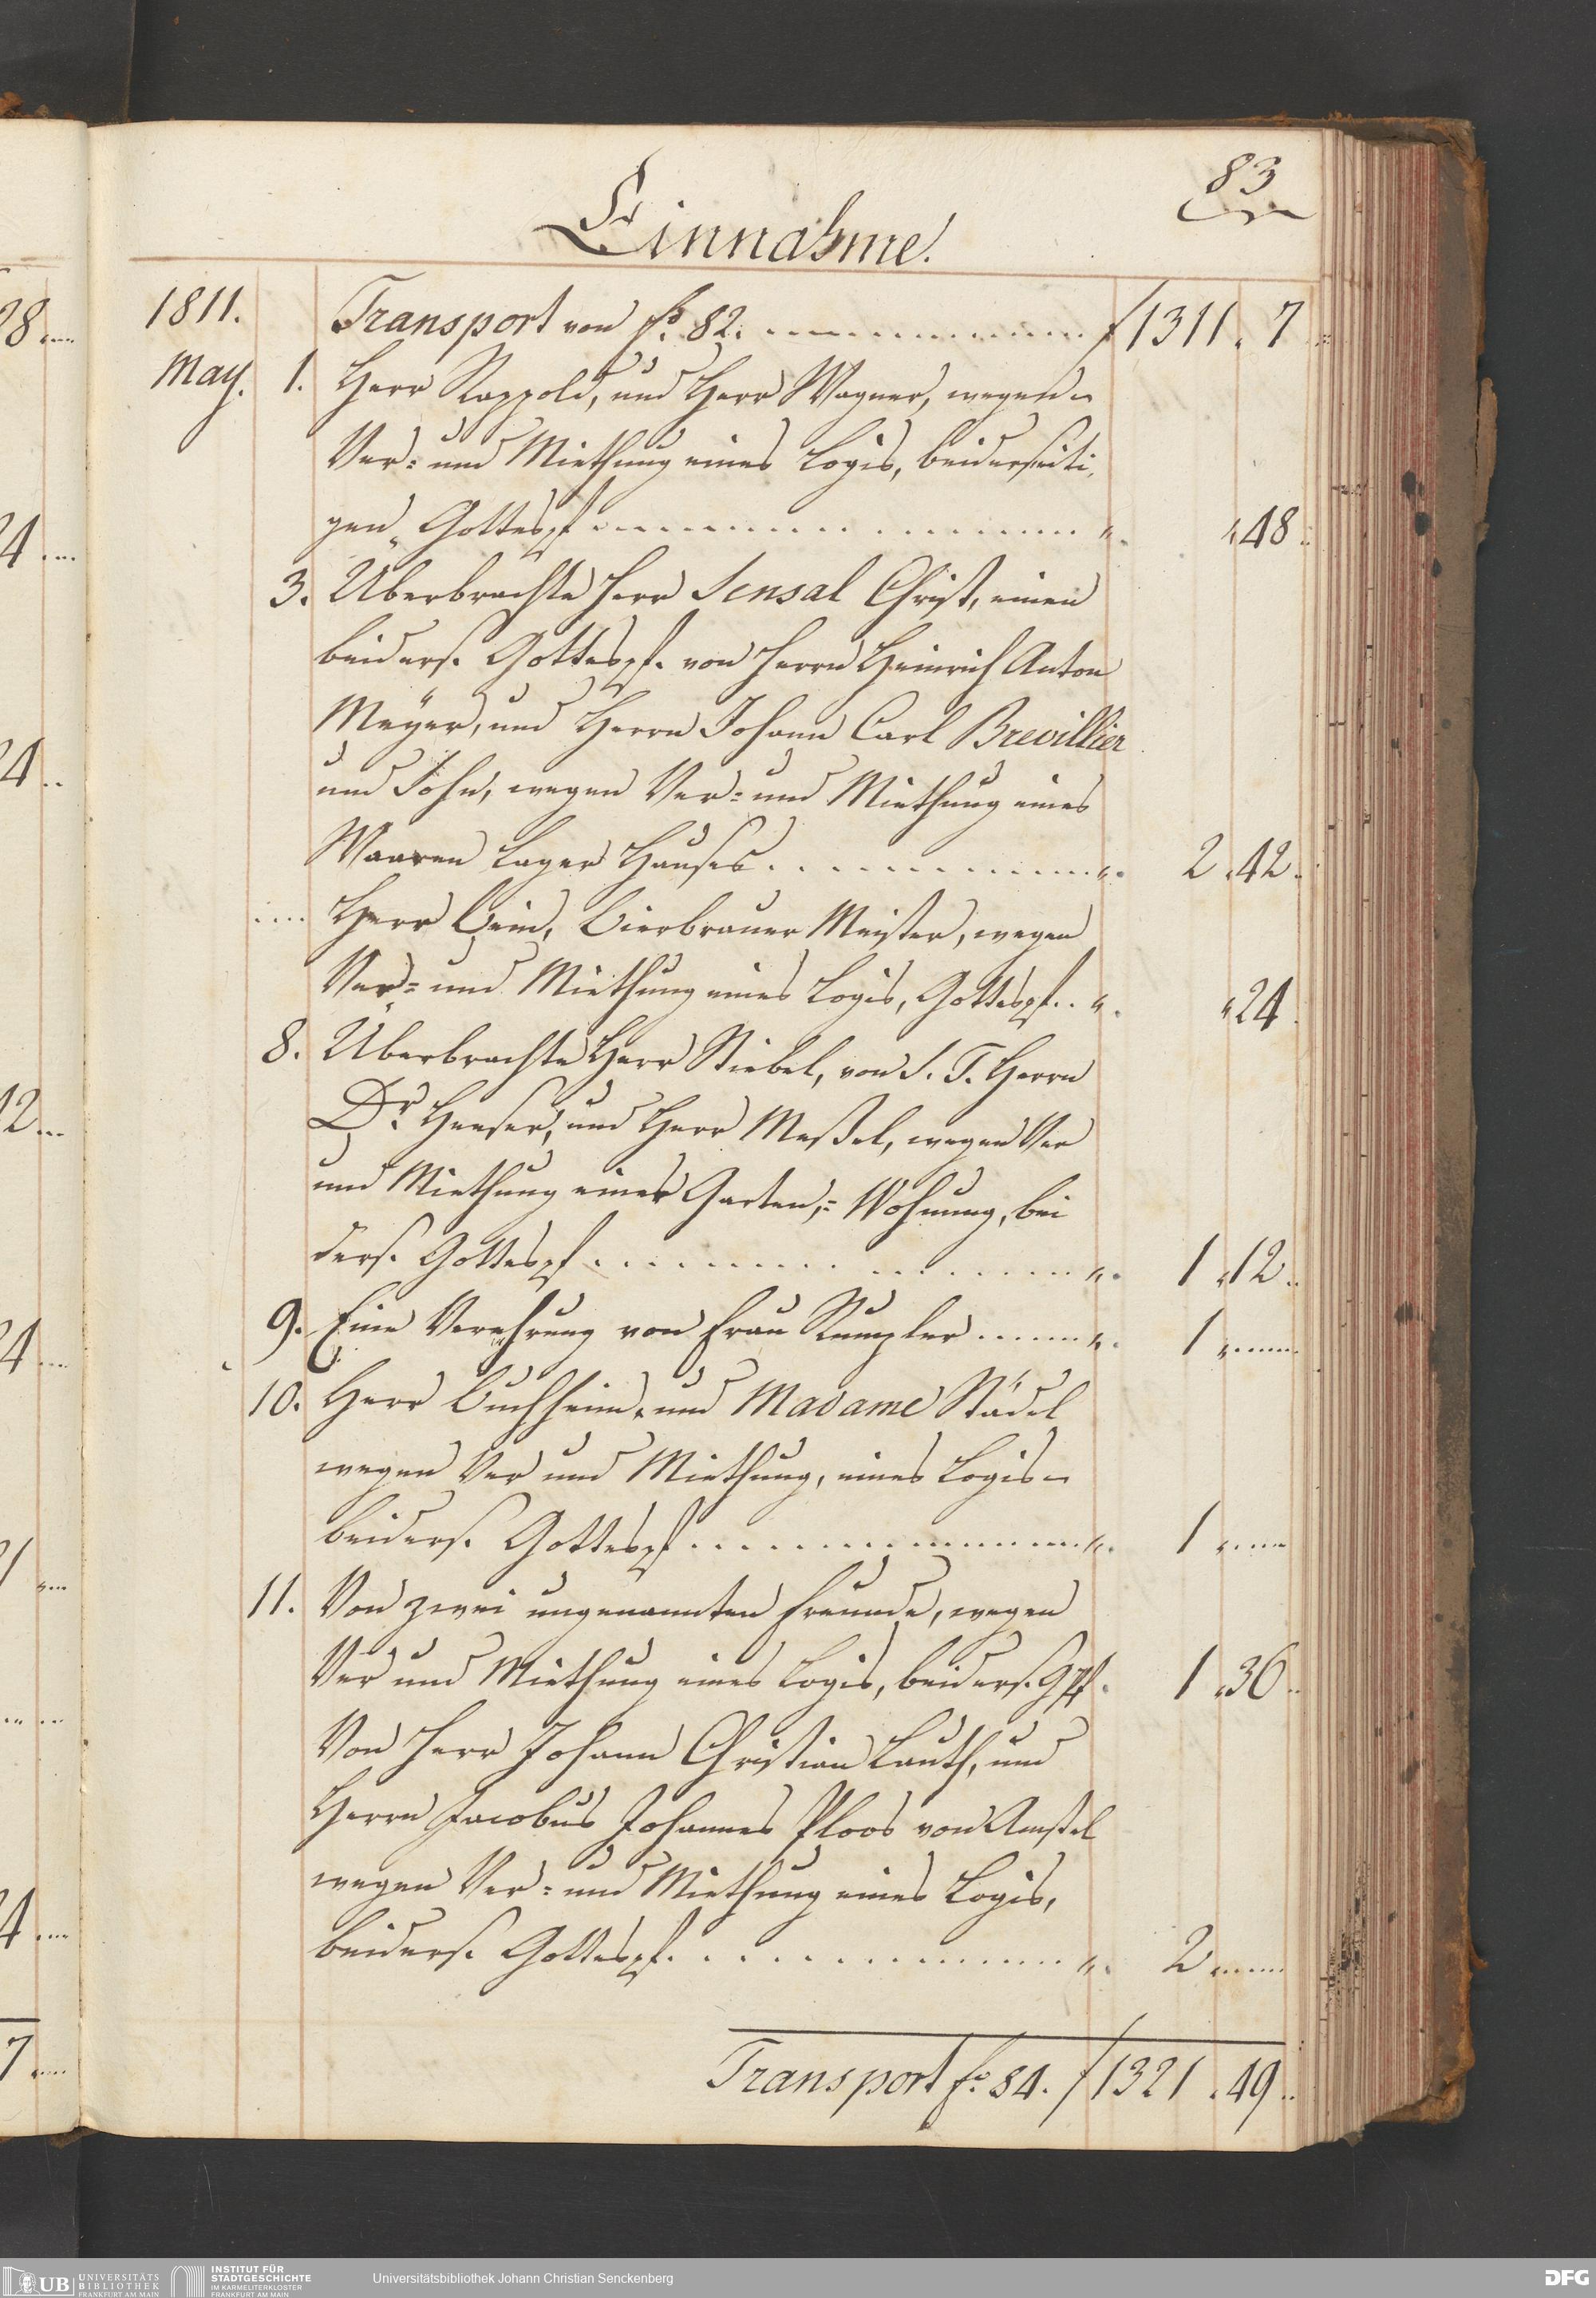 83
Einnahme.
1811. Transport von fo. 82. f 1311. 7
May. 1. Herr Rappold, und Herr Wagner, wegen
Ver= und Miethung eines Logis, beiderseiti-
gen Gottespf. 48
3. Überbrachte Herr Sensal Christ, einen
beiders. Gottespf. von Herrn Heinrich Anton
Meÿer, und Herrn Johann Carl Brevillier
und Sohn, wegen Ver= und Miethung eines
Waaren Lager Hauses 2. 42.
Herr Bein, Bierbrauer Meister, wegen
Ver= und Miethung eines Logis, Gottespf. 24
8. Überbrachte Herr Stiebel, von S. T. Herrn
Dr. Heuser, und Herr Meßel, wegen Ver
und Miethung einer Garten,= Wohnung, bei
ders. Gottespf. 1. 12.
9. Eine Verehrung von Frau Rumpler 1
10. Herr Buchheim, und Madame Städel
wegen Ver und Miethung, eines Logis
beiders. Gottespf. 1
11. Von zwei ungenannten Freunde, wegen
Ver und Miethung eines Logis, beiders. Gpf. 1. 36
Von Herr Johann Christian Lauth, und
Herrn Jacobus Johannes Ploos von Amstel
wegen Ver= und Miethung eines Logis,
beiders. Gottespf. 2
Transport fo. 84. f 1321. 49
28
24
24
12
24
21
24
7
UB UNIVERSITÄTS
BIBLIOTHEK
FRANKFURT AM MAIN
INSTITUT FÜR
STADTGESCHICHTE
IM KARMELITERKLOSTER
FRANKFURT AM MAIN
Universitätsbibliothek Johann Christian Senckenberg
DFG